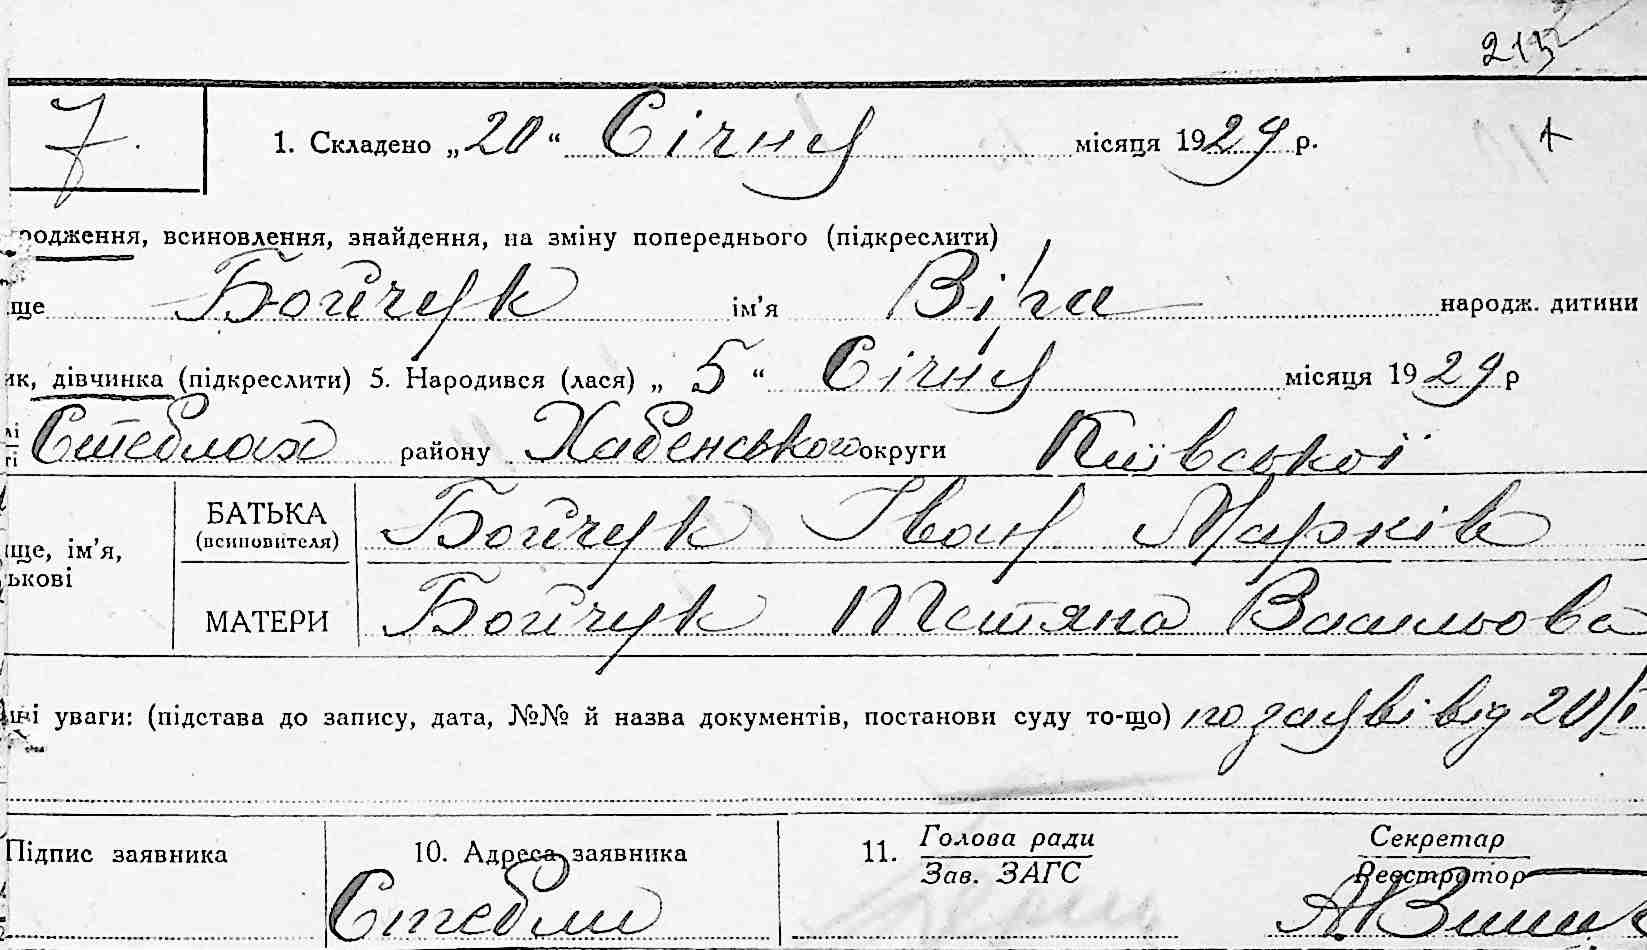 213
7. 1. Складено „20“ Січня місяця 1929 р.
родження, всиновлення, знайдення, на зміну попереднього (підкреслити)
ще Бойчук ім’я Віра народж. дитини
ик, дівчинка (підкреслити) 5. Народився (лася) „5“ Січня місяця 1929 р
Стеблах району Хабенського округи Київської
ще, ім’я, ькові БАТЬКА (всиновителя) Бойчук Іван Марків
МАТЕРИ Бойчук Тетяна Васильова
уваги: (підстава до запису, дата, №№ й назва документів, постанови суду то-що) по заяві від 20/I
Підпис заявника 10. Адреса заявника 11. Голова ради Секретар
Зав. ЗАГС Реєстратор
Стебли